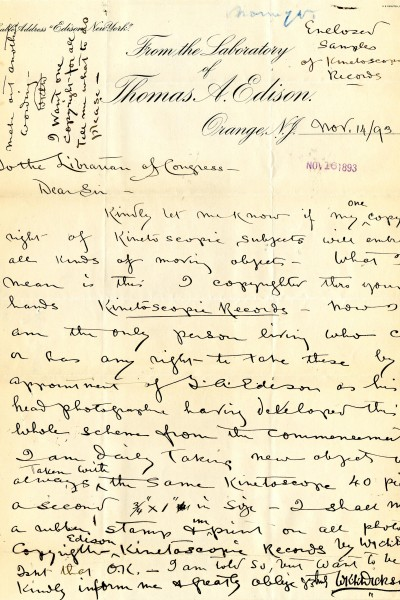 Cable Address "Edison, New York."
From the Laboratory
of
Thomas A. Edison.
Orange, N.J. Nov. 14/93
Enclozed
Samples
of Kinetoscopic
Records
make out another
wording
I want one
copyright for all
Tell me what to do
please —
NOV 16 1893
To the Librarian of Congress —
Dear Sir —
Kindly let me know if my one copy
right of Kinetoscopic subjects will
all kinds of moving objects — What
mean is this I copyrighted thro your
hands Kinetoscopic Records — now
am the only person living who
or has any right to take these by
appointment of T. A. Edison as his
head photographer having developed this
whole scheme from the commencement
I am Daily Taking new objects
Taken with
always the Same Kinetoscope 40
a second ¾" x 1" in size — I shall
a rubber stamp & imprint on all
Copyright Edison Kinetoscopic Records by
Isnt that O.K. — I am told so, but want to be
Kindly inform me & greatly oblige yrs W.K.L. Dickson